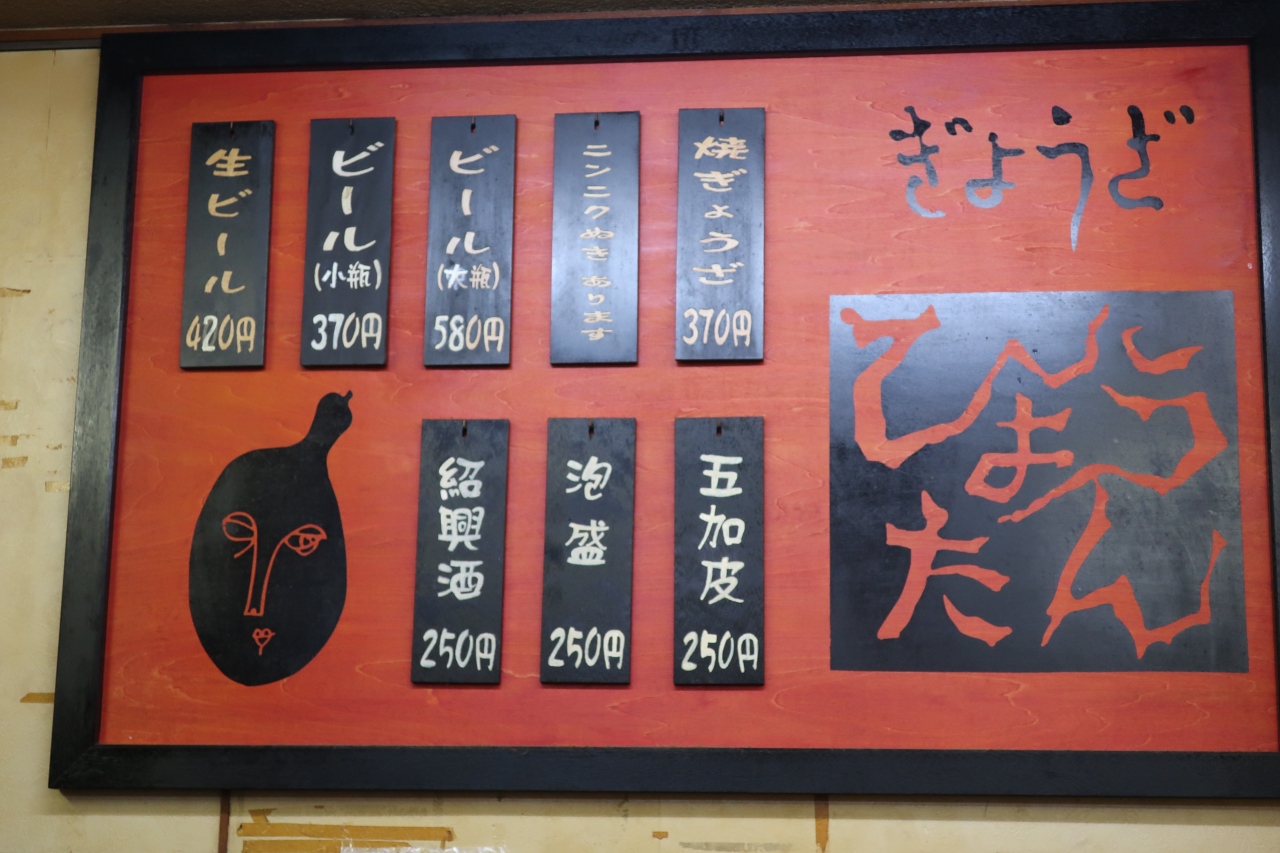 ぎょうざ
ひょうたん
焼ぎょうざ
370円
ニンニクぬき あります
ビール
(大瓶)
580円
ビール
(小瓶)
370円
生ビール
420円
五加皮
250円
泡盛
250円
紹興酒
250円